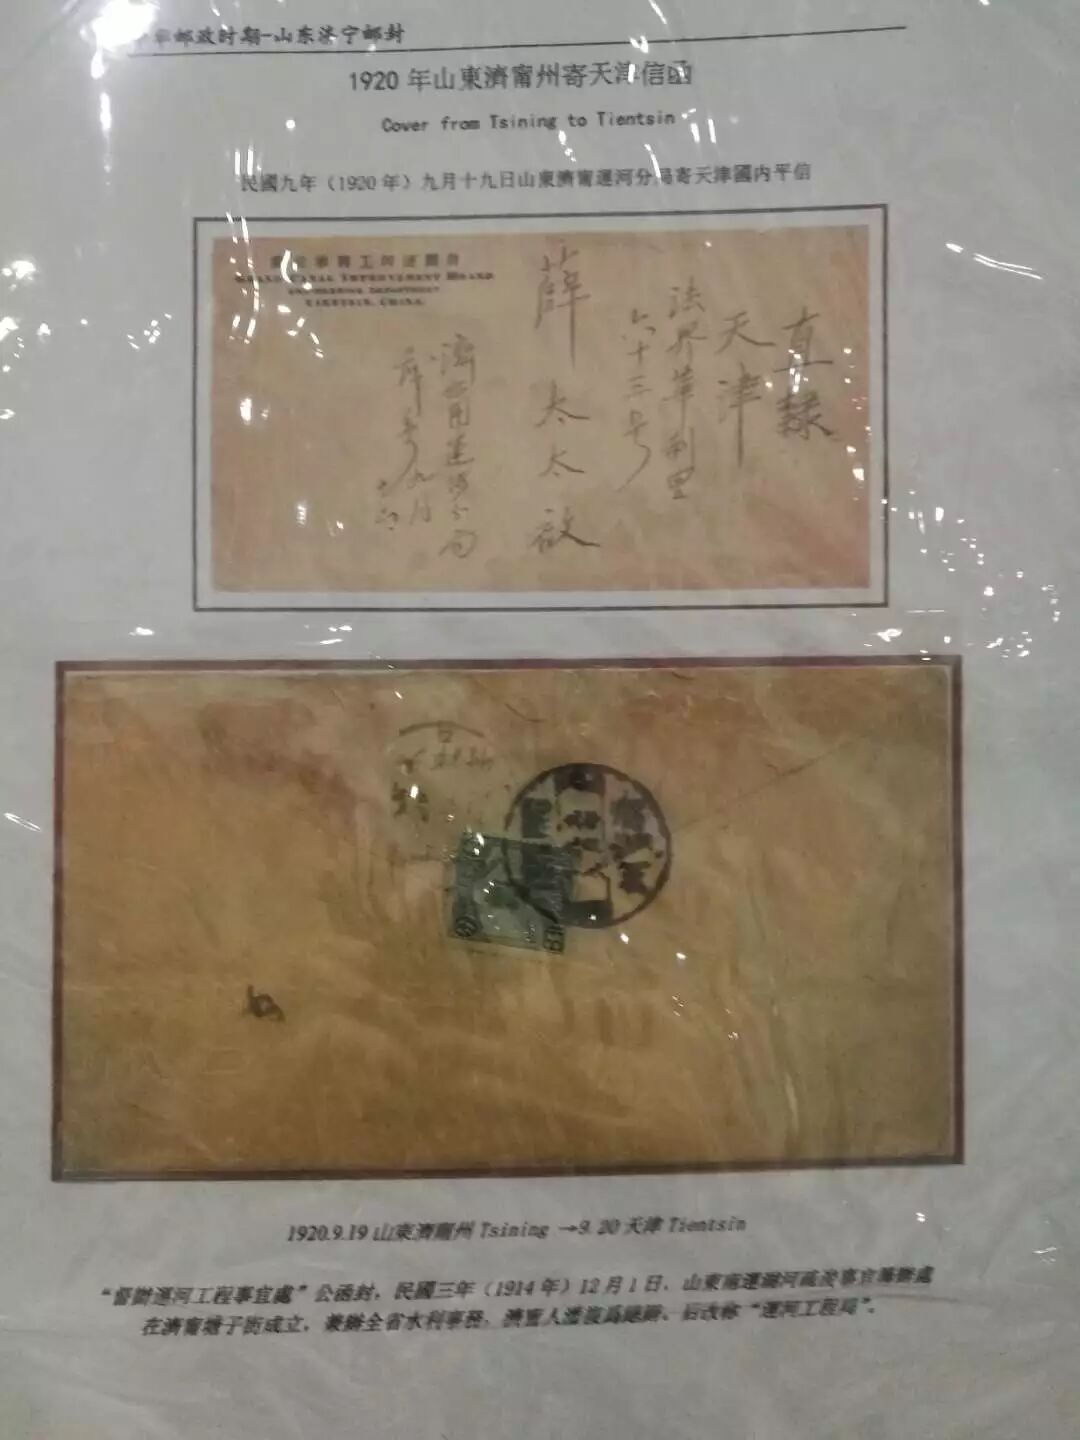 中華邮政时期-山东济宁邮封
1920 年山東濟甯州寄天津信函
Cover from Tsining to Tientsin
民國九年（1920 年）九月十九日山東濟甯運河分局寄天津國内平信
督辦運河工程事宜處
GRAND CANAL IMPROVEMENT BOARD
ENGINEERING DEPARTMENT
TIENTSIN, CHINA.
直隸
天津
法界華利里
六十三号
薛太太啟
濟甯運河分局
薛 九月
1920.9.19 山東濟甯州 Tsining →9.20 天津 Tientsin
“督辦運河工程事宜處”公函封，民國三年（1914 年）12 月 1 日，山東南運湖河疏浚事宜籌辦處
在濟甯塘子街成立，兼辦全省水利事務，濟甯人潘復爲總辦、后改称“運河工程局”。